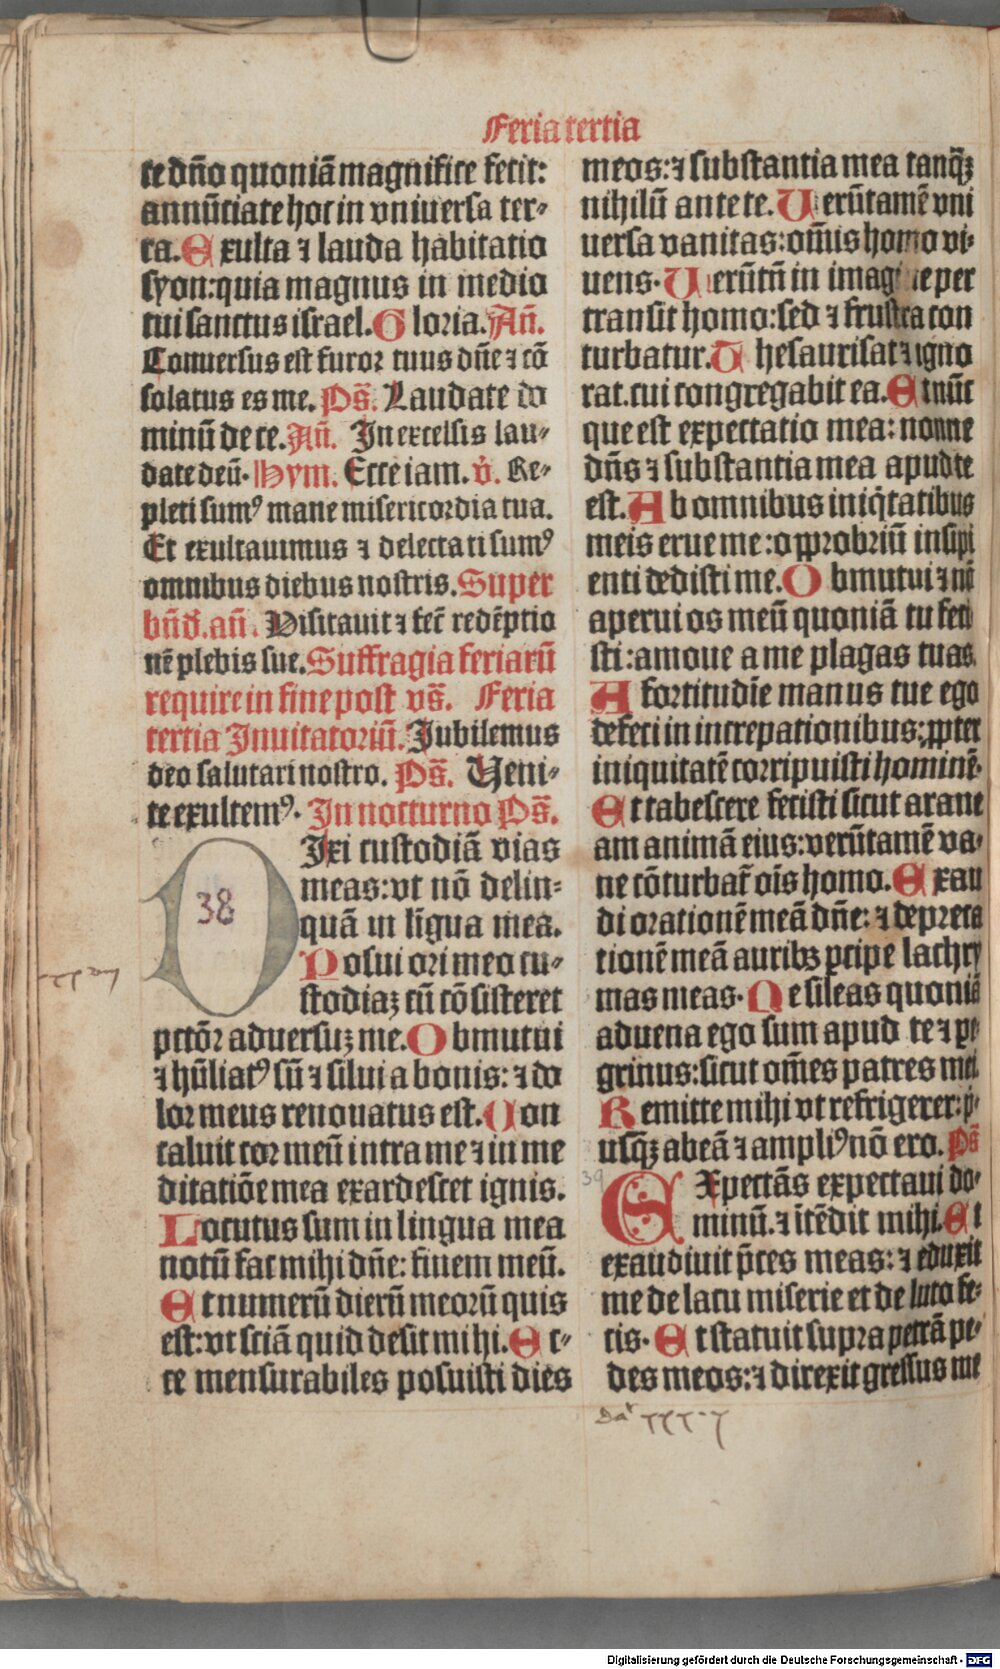 Feria tertia
te dño quoniã magnifice fecit:
annũciate hoc in vniuersa ter-
ra. Exulta ⁊ lauda habitatio
syon: quia magnus in medio
tui sanctus israel. Gloria. Añ.
Conuersus est furor tuus dñe ⁊ cõ
solatus es me. Ps̃. Laudate do
minũ de ce. Añ. In excelsis lau-
date deũ. Hym. Ecce iam. v̓. Re-
pleti sumꝰ mane misericordia tua.
Et exultauimus ⁊ delectati sumꝰ
omnibus diebus nostris. Super
bñd̓. añ. Visitauit ⁊ fec̃ redẽptio
nẽ plebis sue. Suffragia feriarũ
require in fine post vs̃. Feria
tertia Inuitatoriũ. Jubilemus
deo salutari nostro. Ps̃. Veni-
te exultemꝰ. In nocturno Ps̃.
DIxi custodiã vias
meas: vt nõ delin=
quã in lĩgua mea.
Posui ori meo cu-
stodiaꝫ cũ cõsisteret
pctõꝛ aduersuꝫ me. Obmutui
⁊ hũliatꝰ sũ ⁊ silui a bonis: ⁊ do
lor meus renouatus est. Con
caluit cor meũ intra me ⁊ in me
ditatiõe mea exardescet ignis.
Locutus sum in lingua mea
notũ fac mihi dñe: finem meũ.
Et numerũ dierũ meorũ quis
est: vt sciã quid desit mihi. Ec-
ce mensurabiles posuisti dies
38
meos: ⁊ substantia mea tanq̃ꝫ
nihilũ ante te. Uerũtamẽ vni
uersa vanitas: om̃is homo vi-
uens. Uerũtñ in imagine per
transit homo: sed ⁊ frustra con
turbatur. Thesaurisat ⁊ igno
rat. cui congregabit ea. Et nũc
que est expectatio mea: nonne
dñs ⁊ substantia mea apud te
est. Ab omnibus iniq̃tatibus
meis erue me: opprobriũ insipi
enti dedisti me. Obmutui ⁊ nõ
aperui os meũ quoniã tu feci
sti: amoue a me plagas tuas.
A fortitudĩe manus tue ego
defeci in increpationibus: ꝓpter
iniquitatẽ corripuisti hominẽ.
Et tabescere fecisti sicut arane
am animã eius: verũtamẽ va-
ne cõturbat̃ ois̃ homo. Exau
di orationẽ meã dñe: ⁊ depreca
tionẽ meã auribꝫ ꝑcipe lachry
mas meas. Ne sileas quoniã
aduena ego sum apud te ⁊ pe
grinus: sicut om̃es patres mei.
Remitte mihi vt refrigerer: p̃-
usq̃ꝫ abeã ⁊ ampliꝰ nõ ero. Ps̃
39
EXpectãs expectaui do-
minũ. ⁊ ĩtẽdit mihi. Et
exaudiuit p̃ces meas: ⁊ eduxit
me de lacu miserie et de luto fe-
cis. Et statuit supra petrã pe-
des meos: ⁊ direxit gressus me
Digitalisierung gefördert durch die Deutsche Forschungsgemeinschaft - DFG